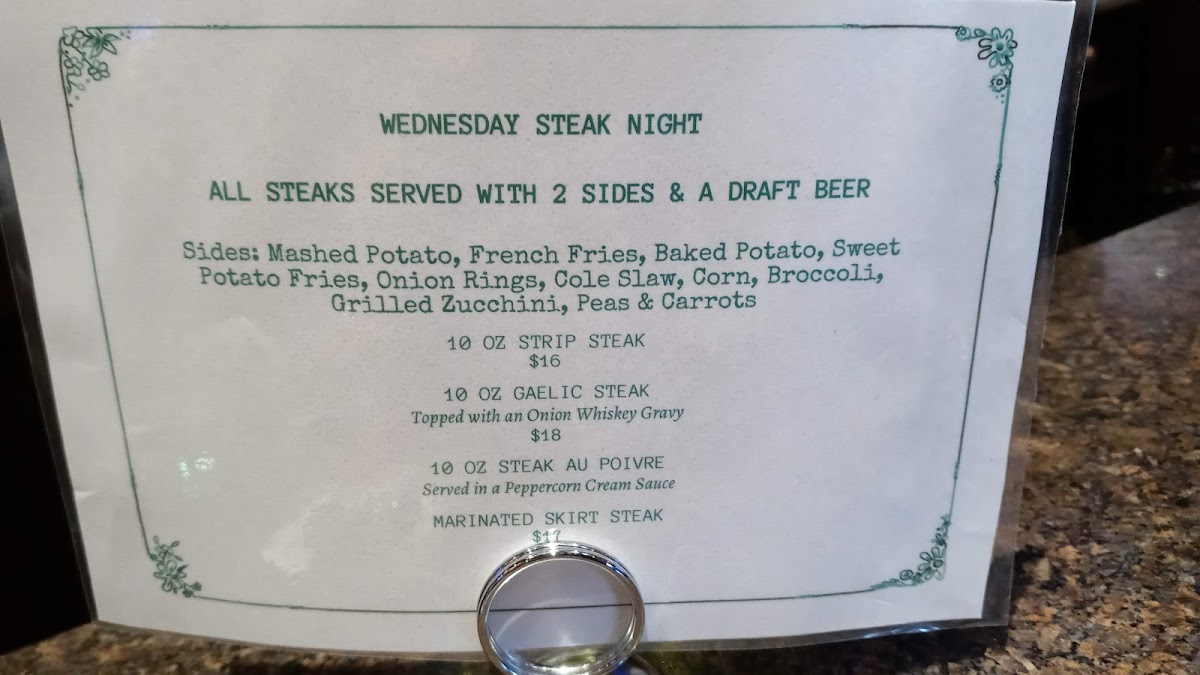 WEDNESDAY STEAK NIGHT
ALL STEAKS SERVED WITH 2 SIDES & A DRAFT BEER
Sides: Mashed Potato, French Fries, Baked Potato, Sweet
Potato Fries, Onion Rings, Cole Slaw, Corn, Broccoli,
Grilled Zucchini, Peas & Carrots
10 OZ STRIP STEAK
$16
10 OZ GAELIC STEAK
Topped with an Onion Whiskey Gravy
$18
10 OZ STEAK AU POIVRE
Served in a Peppercorn Cream Sauce
MARINATED SKIRT STEAK
$17